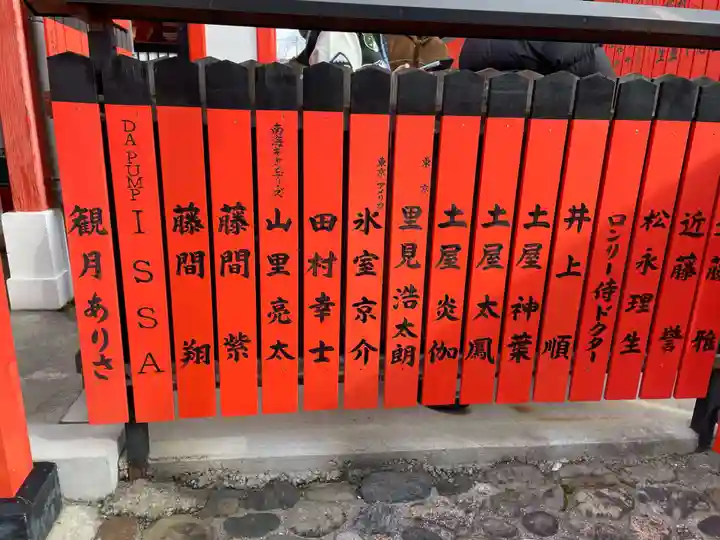 観月ありさ
DA PUMP
ISSA
藤間 翔
藤間 紫
南海キャンディーズ
山里亮太
田村幸士
東京 アメリカ
氷室京介
東京
里見浩太朗
土屋炎伽
土屋太鳳
土屋神葉
井上 順
ロンリー侍ドクター
松永理生
近藤誉